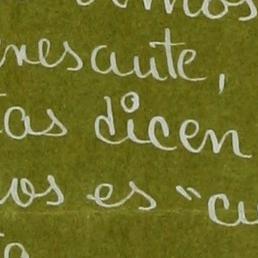 mos
nesaute,
tas dicen
uos es "cu